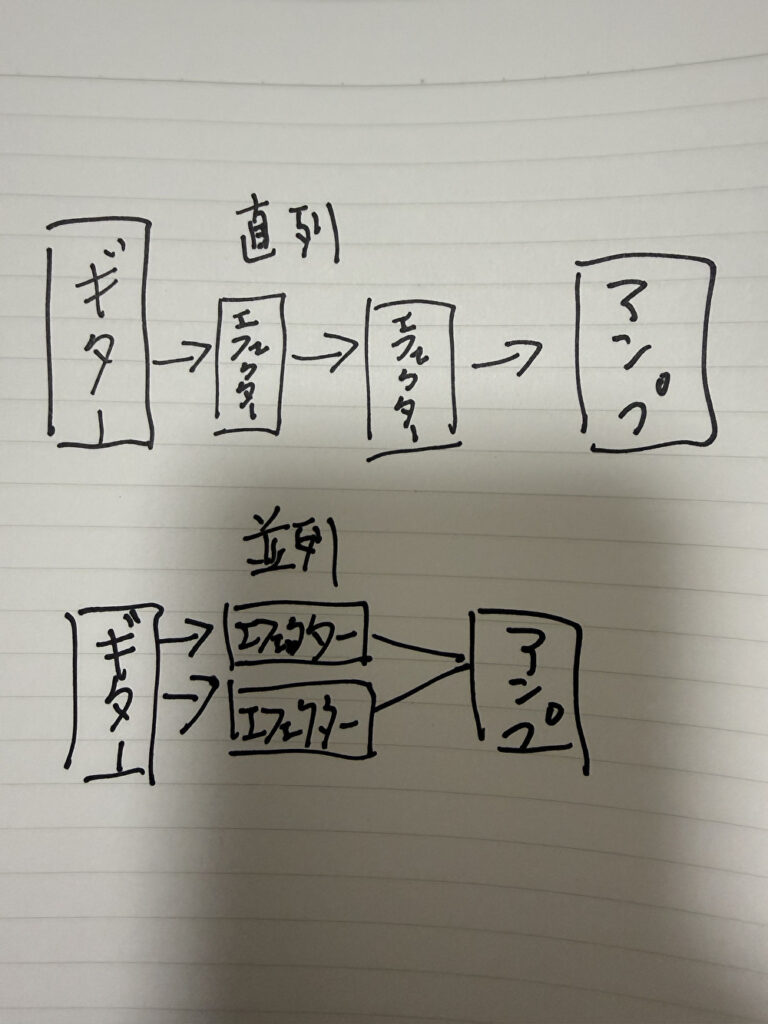 直列
ギター
エフェクター
エフェクター
アンプ
並列
ギター
エフェクター
エフェクター
アンプ